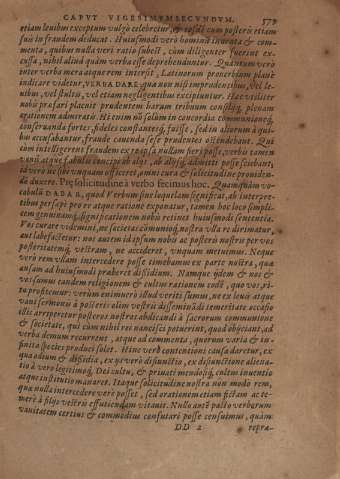 CAPVT VIGESIMVMSECVNDVM. 579
etiam leuibus exceptum vulgò celebretur, & eosdē cum posteris etiam
suis in fraudem deducat. Huiusmodi verò hominū inuenta & com-
menta, quibus nulla veri ratio subest, cùm diligenter fuerint ex-
cussa, nihil aliud quàm verba esse deprehenduntur. Quantum verò
inter verba mera atque rem intersit, Latinorum prouerbium planè
indicare videtur, VERBA DARE: qua non nisi imprudentibus, vel le-
uibus, vel stultis, vel etiam negligentibus excipiuntur. Hæc viriliter
nobis præfari placuit prudentem harum tribuum consiliū, planam
rationem admiratis. Hi enim nō solùm in concordia communioneq́,
conseruanda fortes, fideles constantesq́, fuisse, sed in aliorum à qui-
bus accusabantur, fraude cauenda sese prudentes ostendebant. Qui
cùm intelligerent fraudem
vani atque fabulis concipi ab aliis, ab aliisq́, admitti posse sciebant,
id verò ne sibi vnquam officeret, omni cura & solicitudine prouiden-
dū duxere. Præ solicitudine à verbo fecimus hoc. Quamquàm vo-
cabulū DABAR, quod Verbum siue loquelam significat, ab interpre-
tibus persæpe pro re atque ratione exponatur, tamen hoc loco simpli-
cem genuinamq́, significationem nobis retinet huiusmodi sententia.
Nos curare videmini, ne societas cōmunioq́, nostra vlla re dirimatur,
aut labefactetur: nos autem id ipsum nobis ac posteris nostris per vos
posteritatemq́, vestram, ne accideret, vnquam metuimus. Neque
verò rem vllam intercedere posse timebamus ex parte nostra, quæ
ansam ad huiusmodi præberet dissidium. Namque ijdem & nos &
vos sumus eandem religionem & cultum rationem eodē, quo vos, ri-
tu profitemur. verùm enimuerò illud veriti sumus, ne ex leui atque
vani sermonis à posteris olim vestris disseminādi temeritate accasio
illis arriperetur posteros nostros abdicandi à sacrorum communione
& societate, qui cùm nihil rei nancisci potuerint, quod obijciant, ad
verba demum recurrent, atque ad commenta, quorum varia & in-
finita species produci solet. Hinc verò contentionis causa daretur, ex
qua odium & dissidia, ex ijs verò disiunctio, ex disiunctione aliena-
tio à vero legitimoq́, Dei cultu, & priuati mendosiq́, cultus inuentio
atque institutio manaret. Itaque solicitudine nostra non modo rem,
qua nulla intercedere vero posset, sed orationem etiam fictam ac te-
merè à filijs vestris effutiendam vitauit. Nullo autē pacto verborum
vanitatem certius & commodius confutari posse censuimus, quàm
DD 2 repræ-